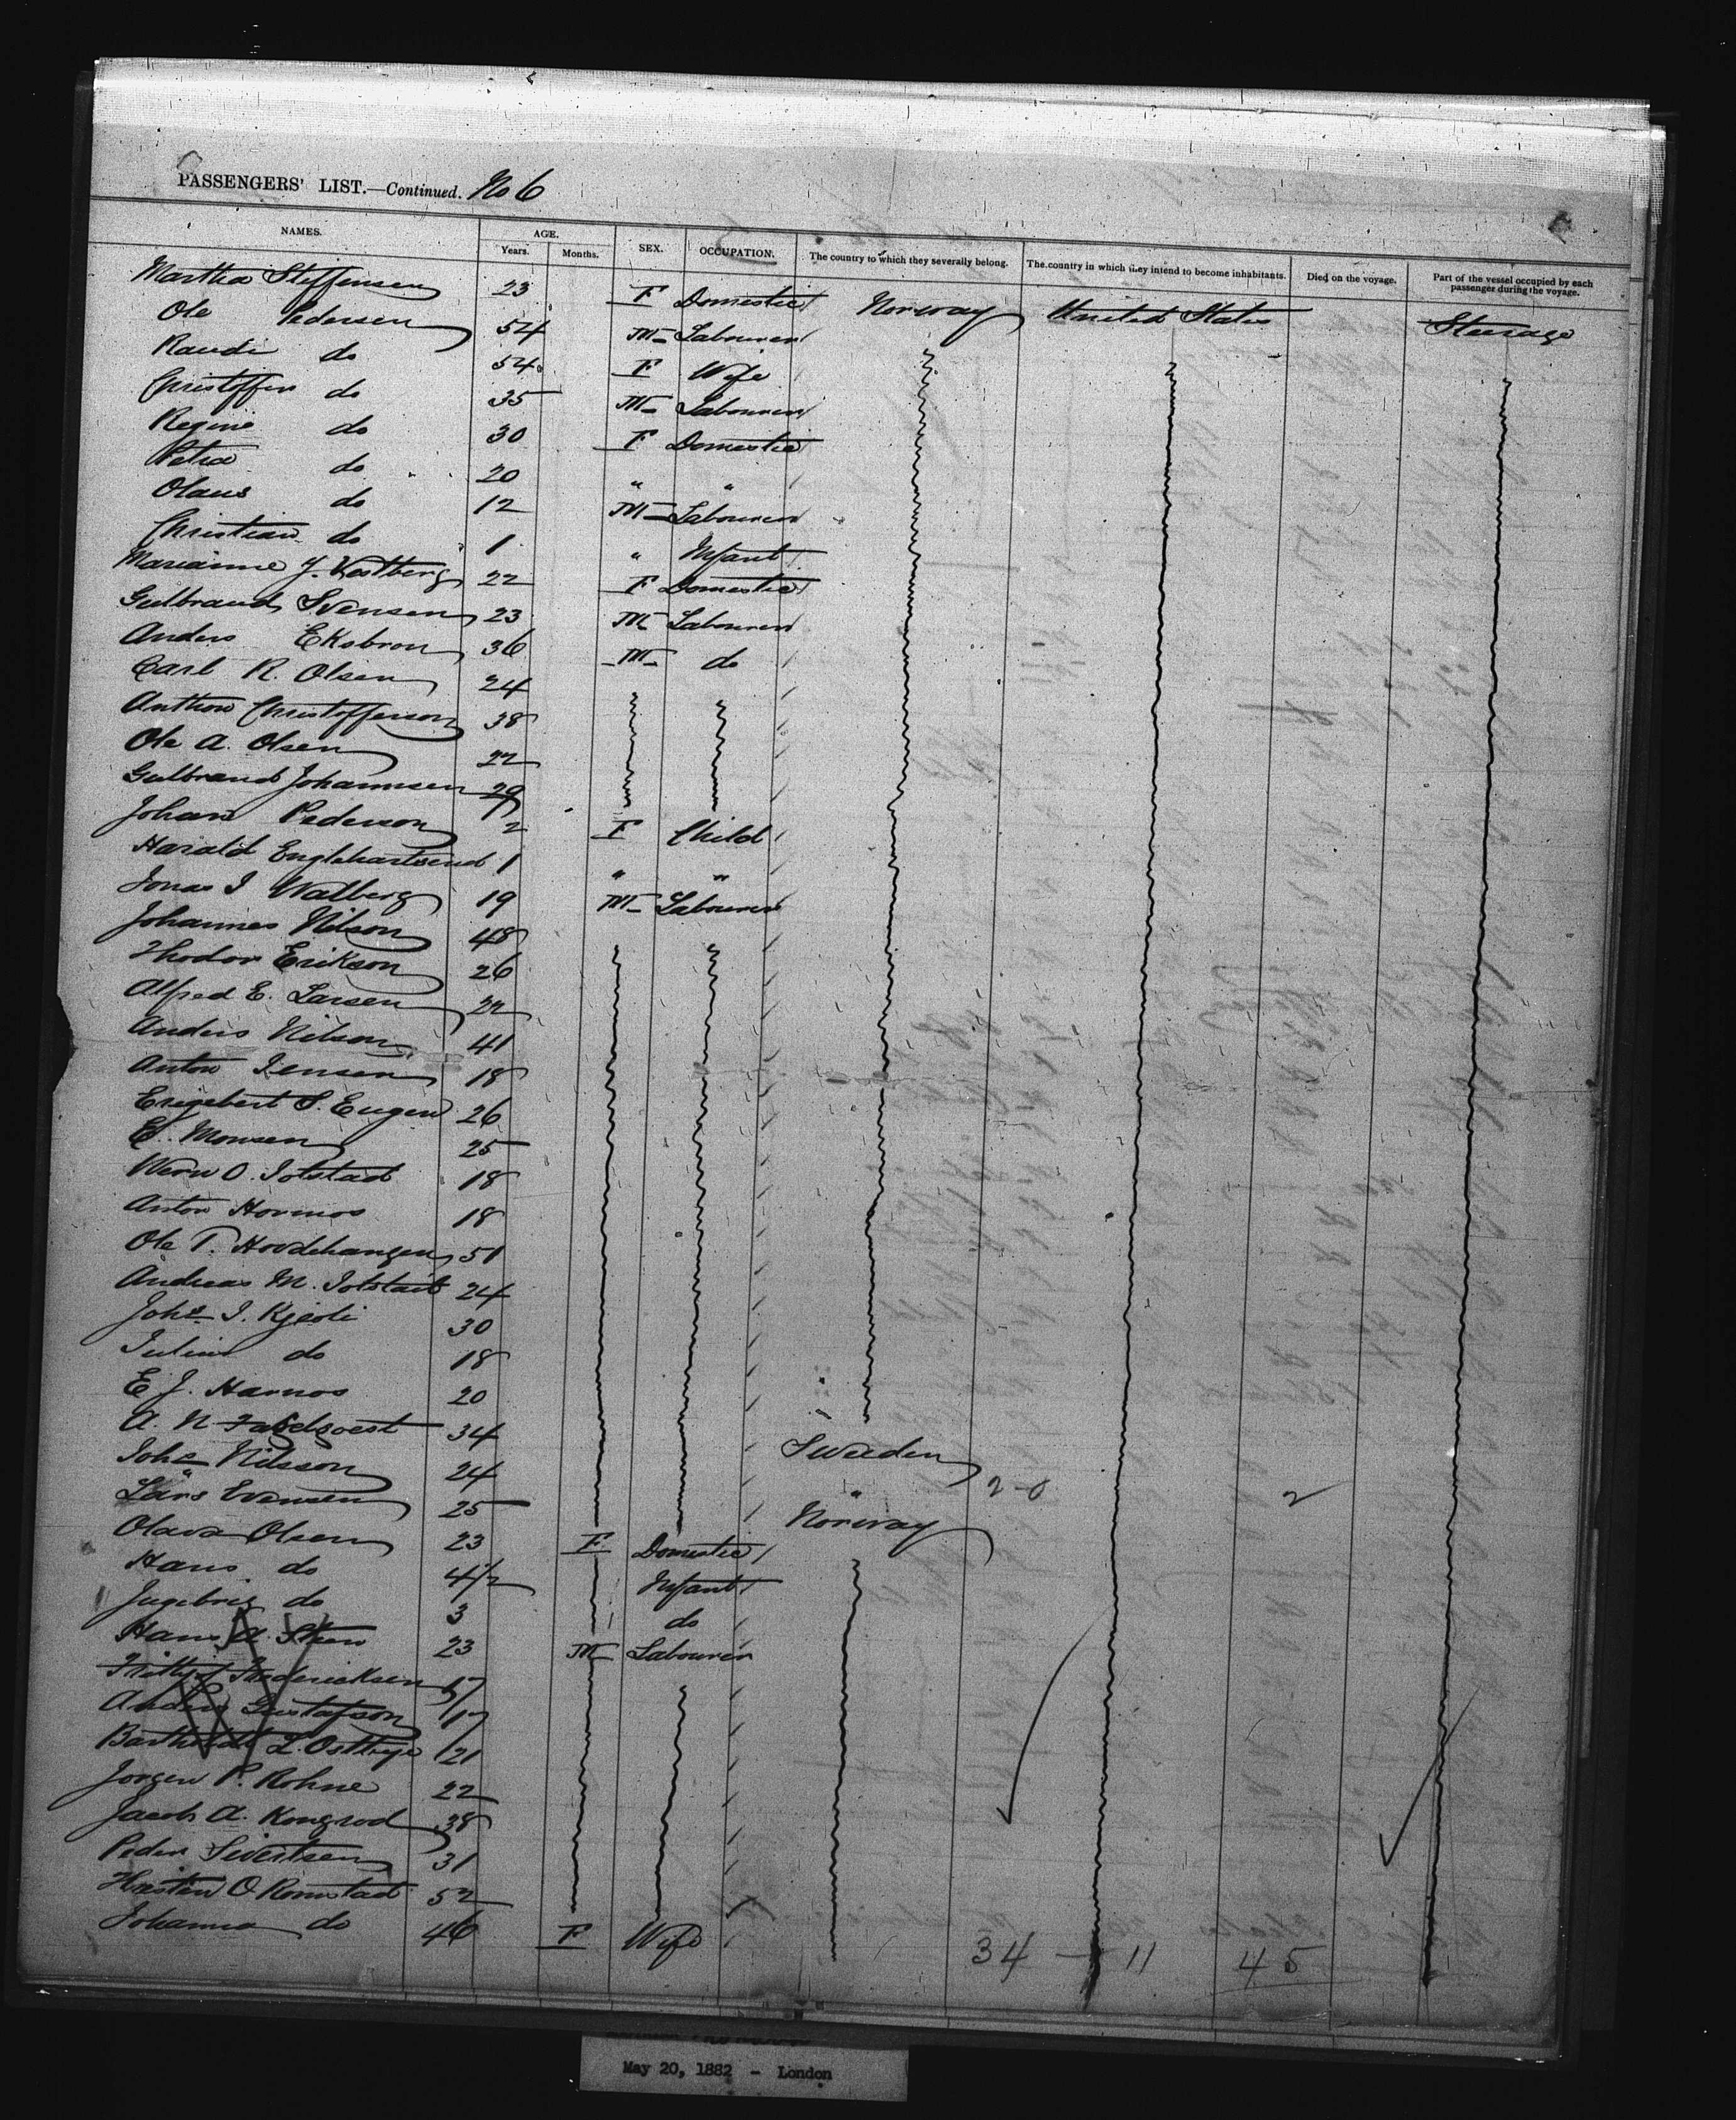 PASSENGERS' LIST.—Continued. No 6
NAMES. AGE. Years. Months. SEX. OCCUPATION. The country to which they severally belong. The country in which they intend to become inhabitants. Died on the voyage. Part of the vessel occupied by each passenger during the voyage.
Martha Steffensen 23 F Domestic Norway United States Steerage
Ole Pedersen 54 M Labourer
Randi do 54 F Wife
Christoffer do 35 M Labourer
Regine do 30 F Domestic
Petra do 20 " "
Olaus do 12 M Labourer
Christian do 1 " Infant
Marianne J. Vestberg 22 F Domestic
Gulbrand Svensen 23 M Labourer
Anders Eksbron 36 M do
Carl R. Olsen 24
Anthon Christofferson 38
Ole A. Olsen 22
Gulbrand Johannsen 29
Johan Pederson 2 F Child
Harald 1 " "
Jonas I Walberg 19 M Labourer
Johannes Nilson 48
Thodor Erikson 26
Alfred E. Larsen 22
Anders Nilson 41
Anton Jensen 18
S. Eugen 26
E. Monsen 25
O. Solstad 18
Anton Hovmos 18
Ole T. 51
Andreas M. Solstad 24
Joh.s I. Kjeoli 30
Julius do 18
E J. Harmos 20
A. N 34 Sweden
Joh.s Nilsson 24 " 2-0 2
Lars Evensen 25 Norway
Olava Olsen 23 F Domestic
Hans do 4 1/2 Infant
Ingebrig do 3 do
Hans A. Steen 23 M Labourer
Frithjof Frederiksen 17
Anders Gustafson 17
L. 21
Jorgen P. Rohne 22
Jacob A. Kongsrod 38
Peder Sivertsen 31
O Romstad 52
Johanna do 46 F Wife 34 - 11 45
May 20, 1882 - London